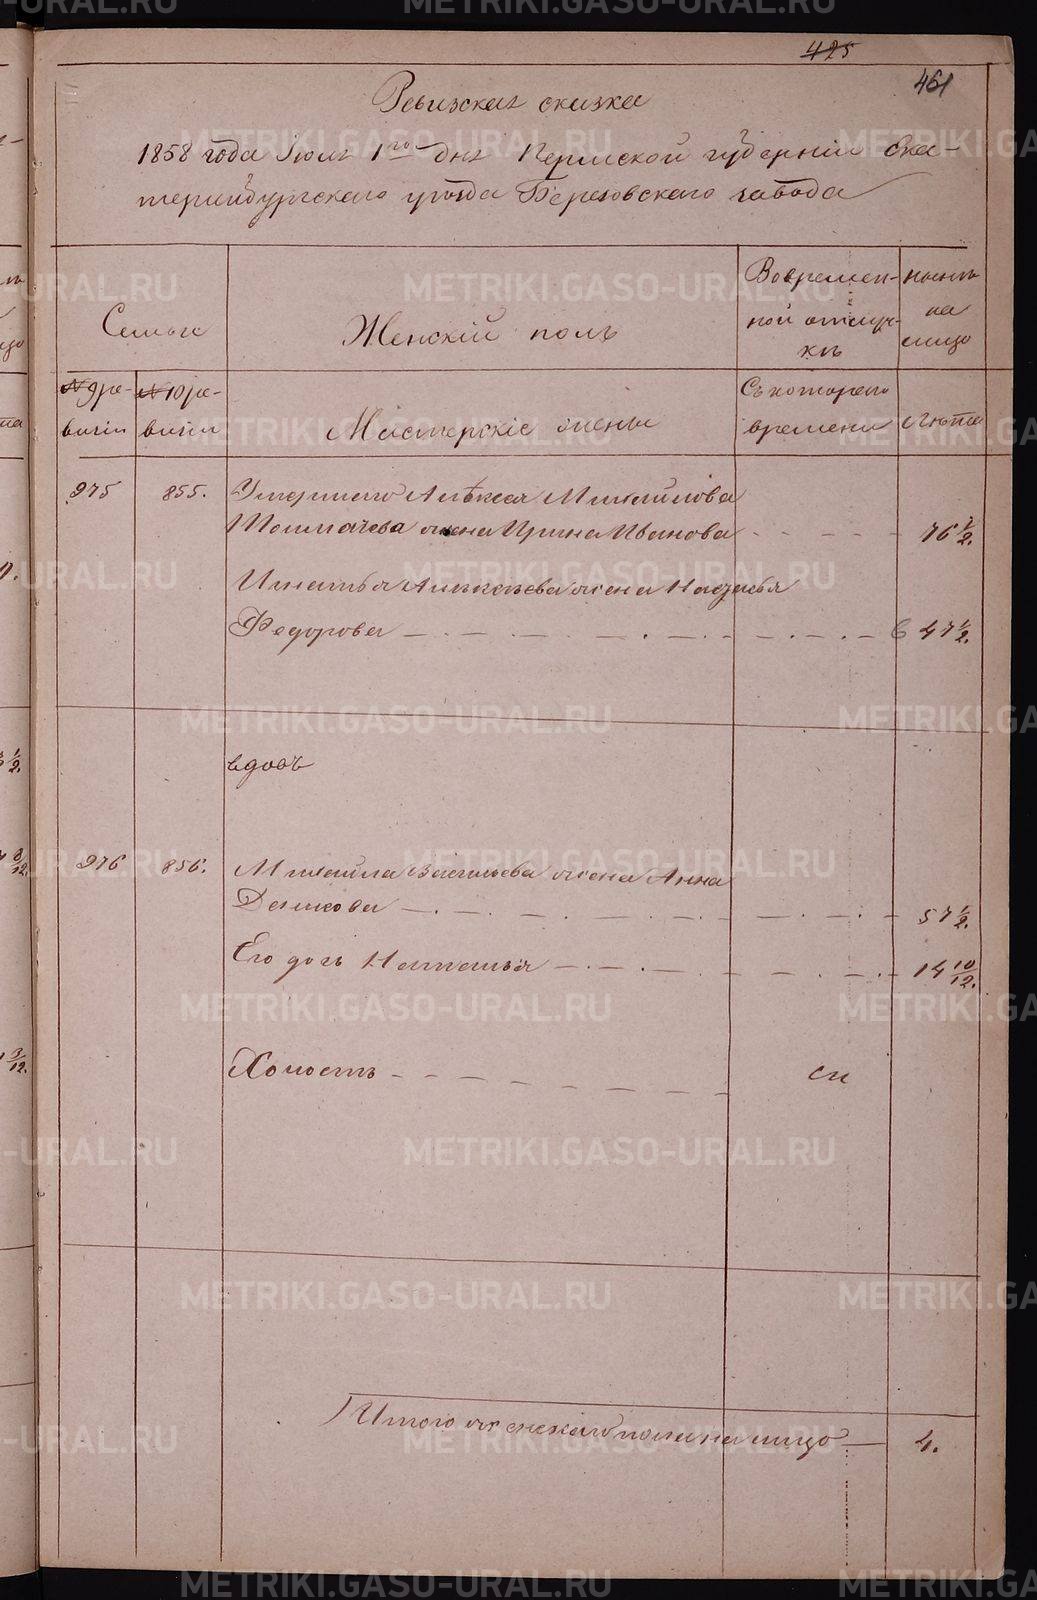 425
461
Ревизская сказка
1858 года Июля 1го дня Пермской губернiи Ека-
теринбургскаго уезда Березовскаго завода
Семьи
Женскiй полъ
Во времен-
ной отлуч-
кѣ
Ныѣ
на
лицо
№ 9 ре-
визiи
№ 10 ре-
визiи
Мастерскiе жены
Съ котораго
времени
лѣта
975 855. Умершаго Алексея Михайлова
Толмачева жена Ирина Иванова 76 1/2.
Игнатья Алексѣева жена Наталья
Федорова 47 1/2.
вдовъ
976 856. Михайла Васильева жена Анна
57 1/2.
Его дочь Наталья 14 10/12.
Холостъ
Итого женскаго пола на лицо 4.
METRIKI.GASO-URAL.RU